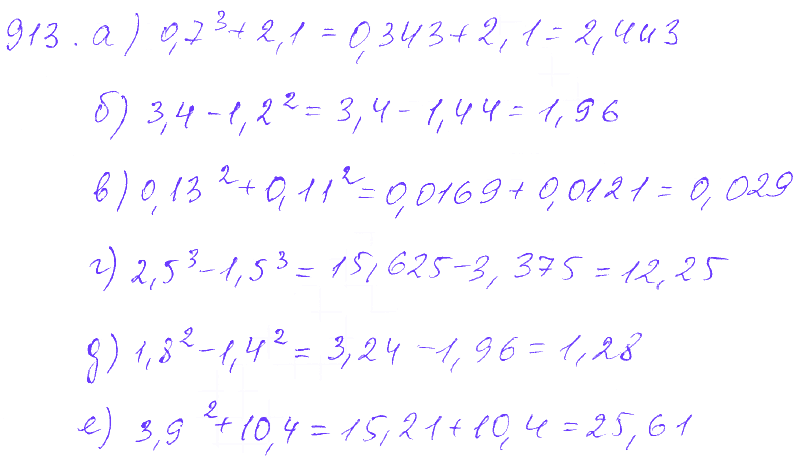 913. а) 0,7³ + 2,1 = 0,343 + 2,1 = 2,443
б) 3,4 - 1,2² = 3,4 - 1,44 = 1,96
в) 0,13² + 0,11² = 0,0169 + 0,0121 = 0,029
г) 2,5³ - 1,5³ = 15,625 - 3,375 = 12,25
д) 1,8² - 1,4² = 3,24 - 1,96 = 1,28
е) 3,9² + 10,4 = 15,21 + 10,4 = 25,61